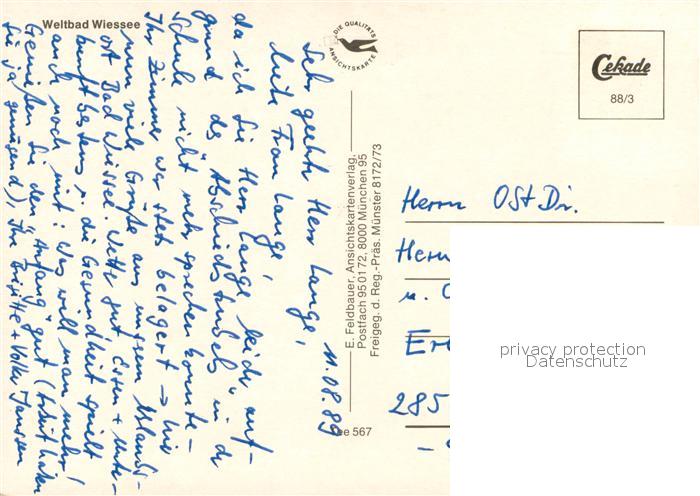 Weltbad Wiessee
DIE QUALITÄTS
ANSICHTSKARTE
Cekade
88/3
E. Feldbauer, Ansichtskartenverlag,
Postfach 95 01 72, 8000 München 95
Freigeg. d. Reg.-Präs. Münster 8172/73
ee 567
11.08.89
Sehr geehrter Herr Lange,
liebe Frau Lange,
da ich Sie Herr Lange leider auf-
grund des Abschiedstrubels in der
Schule nicht mehr sprechen konnte –
Ihr Zimmer war stets belagert → hier
nun viele Grüße aus unserem Urlaubs-
ort Bad Wiessee. Wetter gut, Essen + Unter-
kunft bestens, die Gesundheit spielt
auch noch mit: Was will man mehr!
Genießen Sie den "Anfang" gut (Arbeit hatten
Sie ja genügend), Ihre Brigitte + Volker Janssen
Herrn OStDir.
Herm
u.
285
privacy protection
Datenschutz